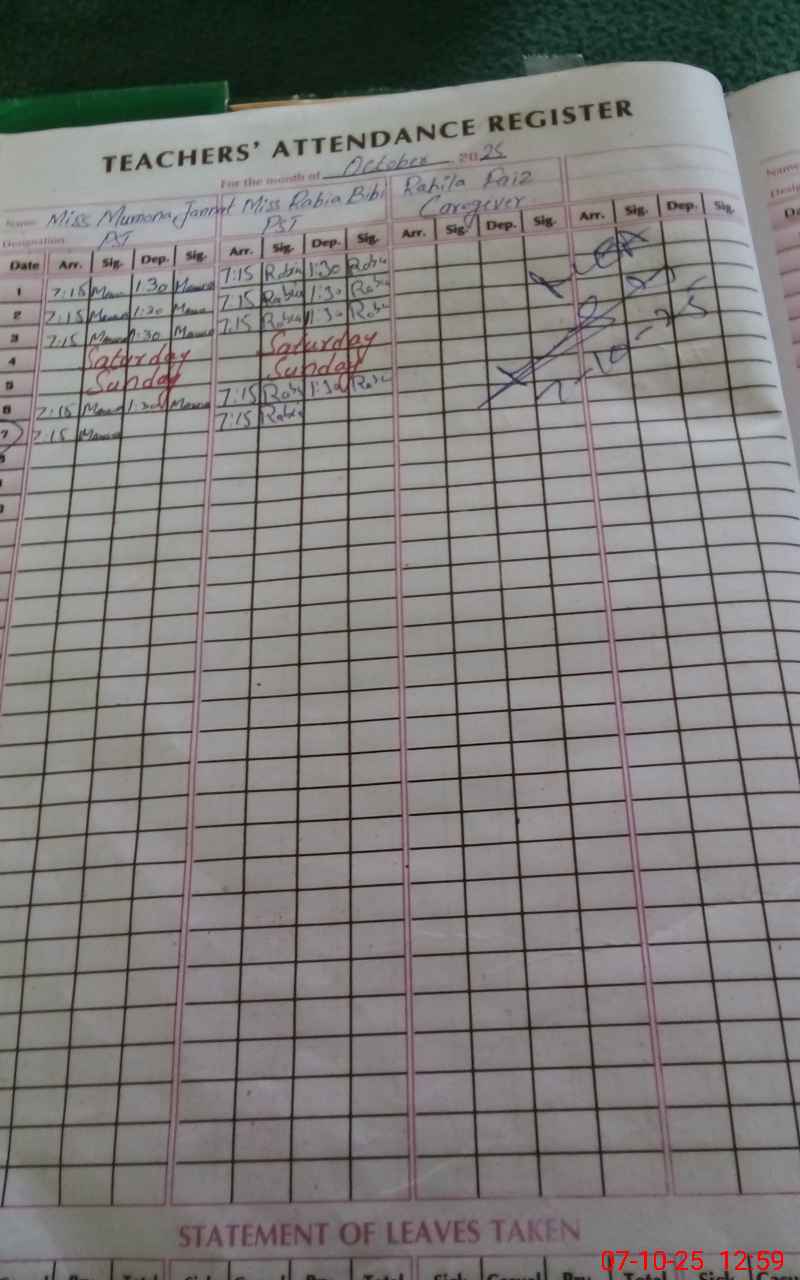 TEACHERS' ATTENDANCE REGISTER
For the month of October 2025
Name Miss Mumona Jannat Miss Rabia Bibi Rahila Faiz
Designation PST PST Caregever
Date Arr. Sig. Dep. Sig. Arr. Sig. Dep. Sig. Arr. Sig. Dep. Sig. Arr. Sig. Dep. Sig.
1 7:15 1:30 7:15 Rabia 1:30 Rabia
2 7:15 1:30 7:15 Rabia 1:30 Rabia
3 7:15 1:30 7:15 Rabia 1:30 Rabia
4 Saturday Saturday
5 Sunday Sunday
6 7:15 1:30 7:15 Rabia 1:30 Rabia
7 7:15 7:15 Rabia
7-10-25
STATEMENT OF LEAVES TAKEN
07-10-25 12:59